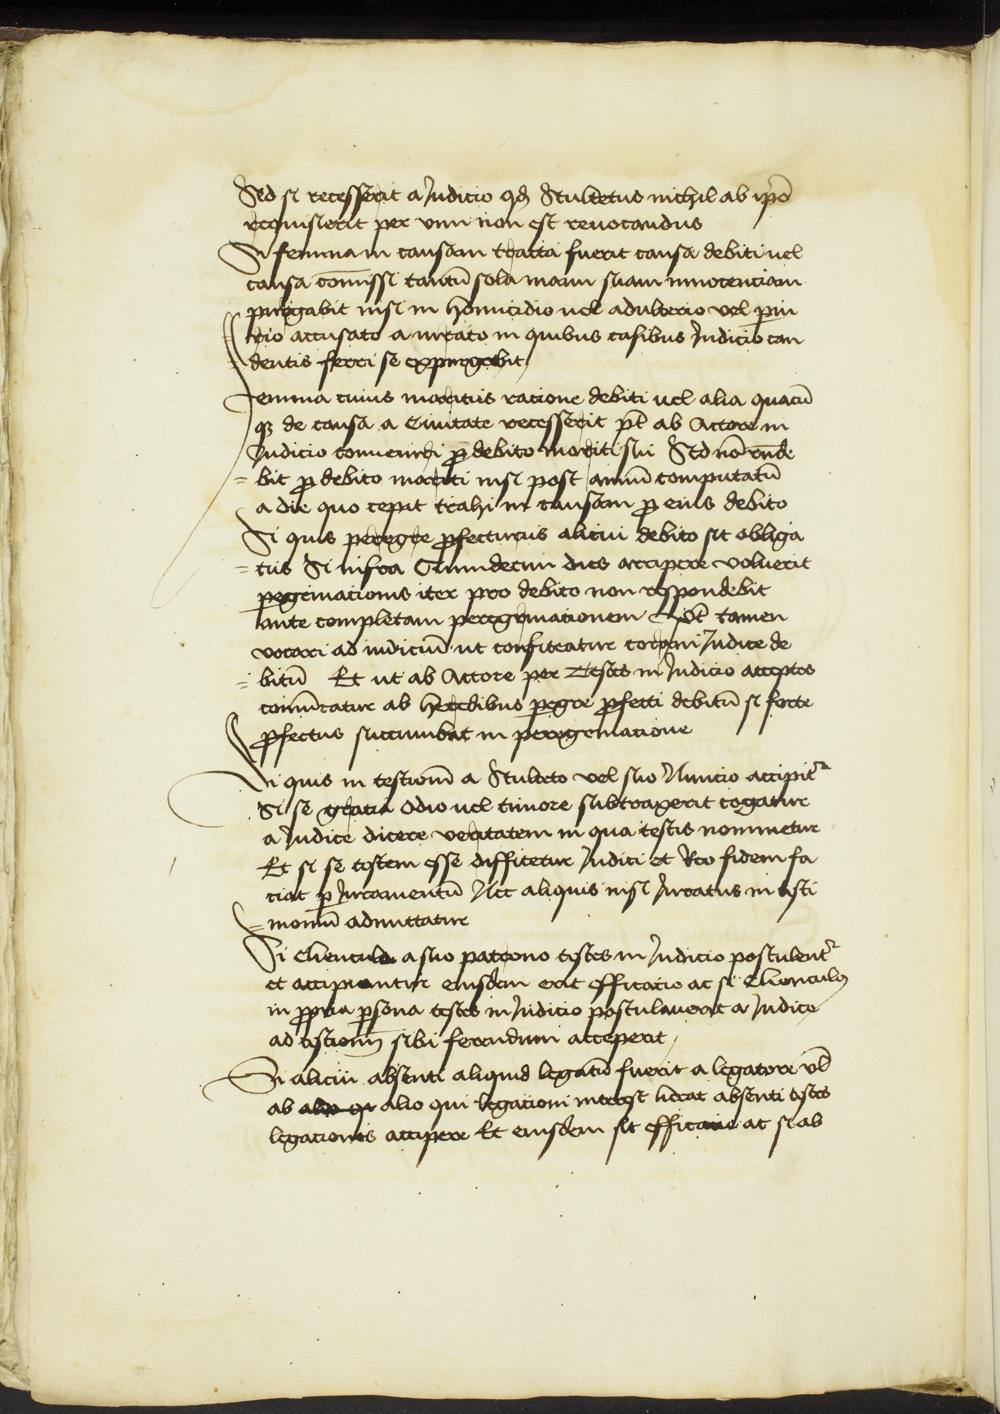 Sed si recesserit a Judicio qd Stultetus nichil ab ipō
requisierit per vim non est reuocandus
Si femina in causam tracta fuerit causa debiti uel
causa cōmissi tantū sola manu suam innocenciam
purgabit nisi in homicidio uel adulterio vel periu
rio accusato a iurato in quibus casibus Judicio can
dentis ferri se expurgabit
Femina cuius maritus ratione debiti uel alia quacū
qȝ de causa a Ciuitate recesserit pt ab Actore in
Judicio conueniri pro debito mariti sui Sed nō runde
= bit pro debito mariti nisi post annū computatū
a die quo cepit trahi in causam pro eius debito
Si quis peregre profecturus alicui debito sit obliga
= tus Si infra Quindecim dies arripere voluerit
peregrinationis iter pro debito non respondebit
ante completam peregrinationem Pōt tamen
vocari ad iudiciū ut confiteatur coram Judice de
= bitū Et ut ab Actore per Testes in Judicio acceptos
conuīcatur ab heredibus peregre profecti debitū si forte
profectus succumbat in peregrinacione
Si quis in testimoniū a Sculteto vel suo Nuncio accipitr
Si se gratia odio uel timore subtraxerit cogatur
a Judice dicere veritatem in qua testis nominetur
Et si se testem esse diffitetur Judici et Reo fidem fa
ciat per Juramentū Nec aliquis nisi Juratus in testi
= moniū admittatur
Si Clienculi a suo patrono testes in Judicio postulentr
et accipiantur eiusdem erit efficatio ac si Clienculus
in propria persona testes in Judicio postulauerit a Judice
ad testimoniū sibi ferendum acceperit
Si alicui absenti aliquid legatū fuerit a legatore vl
ab alio qui legacioni interest liceat absenti testes
legacionis accipere Et eiusdem sit efficacie ac si ab